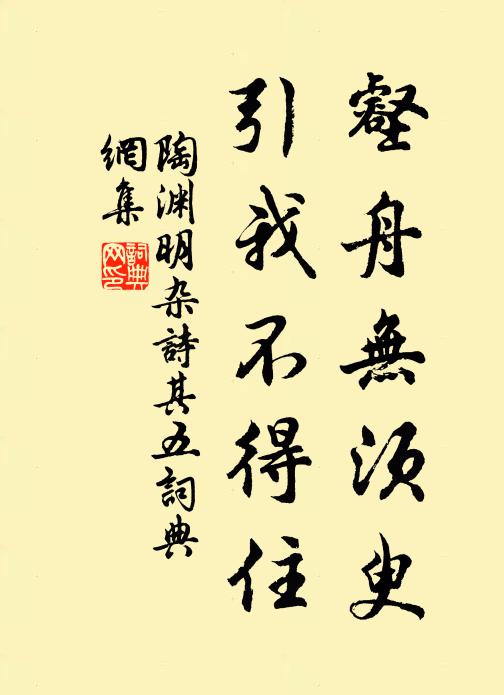 壑舟無須臾
引我不得住
陶渊明杂詩其五詞典
網集
詞典网印